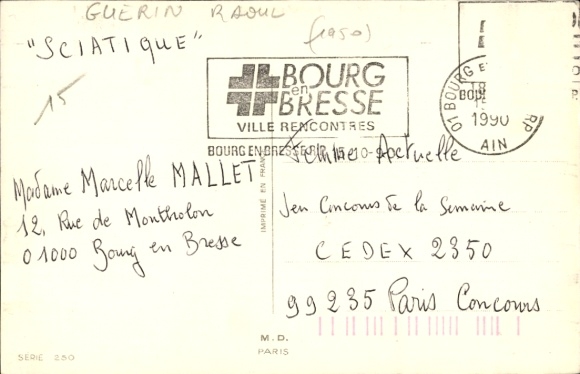 GUERIN RAOUL
(1950)
"SCIATIQUE"
15
BOURG
en
BRESSE
VILLE RENCONTRES
BOURG EN BRESSE RP
01 BOURG EN
1990
RP
AIN
Madame Marcelle MALLET
12, Rue de Montholon
01000 Bourg en Bresse
IMPRIMÉ EN FRANCE
Femme Actuelle
Jeu Concours de la Semaine
CEDEX 2350
99235 Paris Concours
M.D.
PARIS
SERIE 250